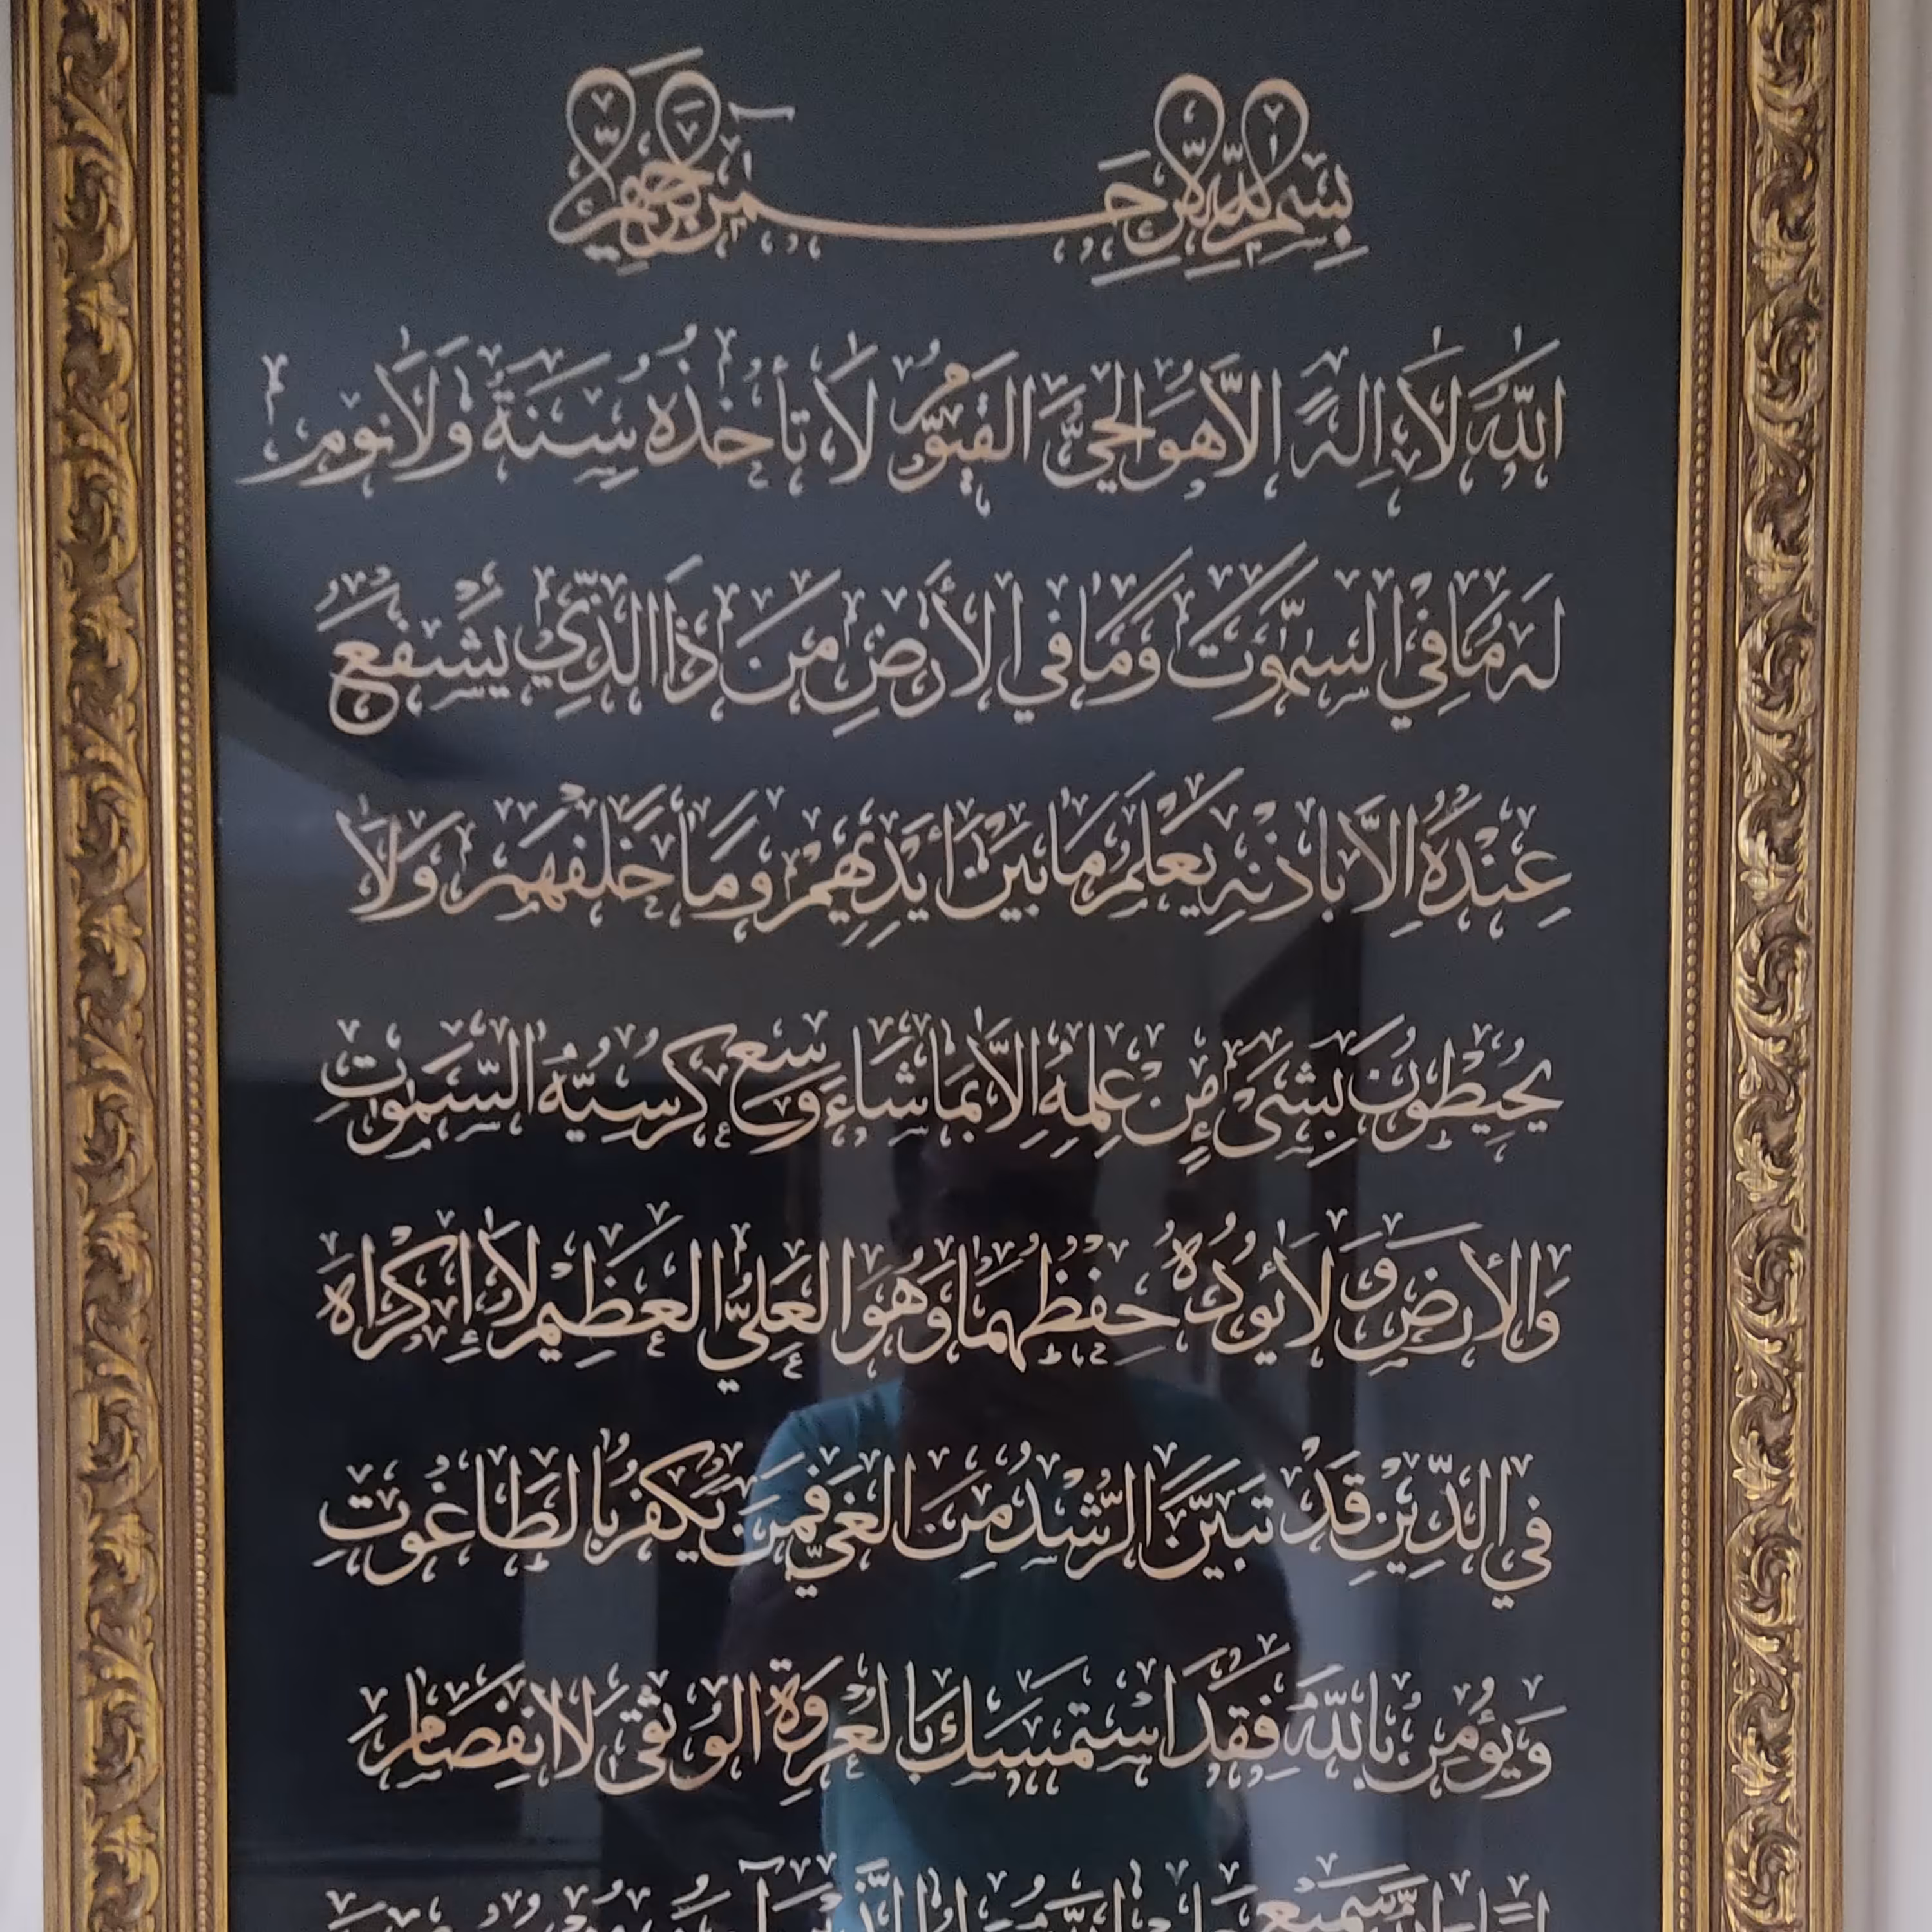 بسم الله الرحمن الرحيم
الله لا اله الا هو الحي القيوم لا تأخذه سنة ولا نوم
له ما في السموت وما في الأرض من ذا الذي يشفع
عنده الا باذنه يعلم ما بين أيديهم وما خلفهم ولا
يحيطون بشيء من علمه الا بما شاء وسع كرسيه السموت
والأرض ولا يؤده حفظهما وهو العلي العظيم لا إكراه
في الدين قد تبين الرشد من الغي فمن يكفر بالطاغوت
ويؤمن بالله فقد استمسك بالعروة الوثقى لا انفصام
سميع